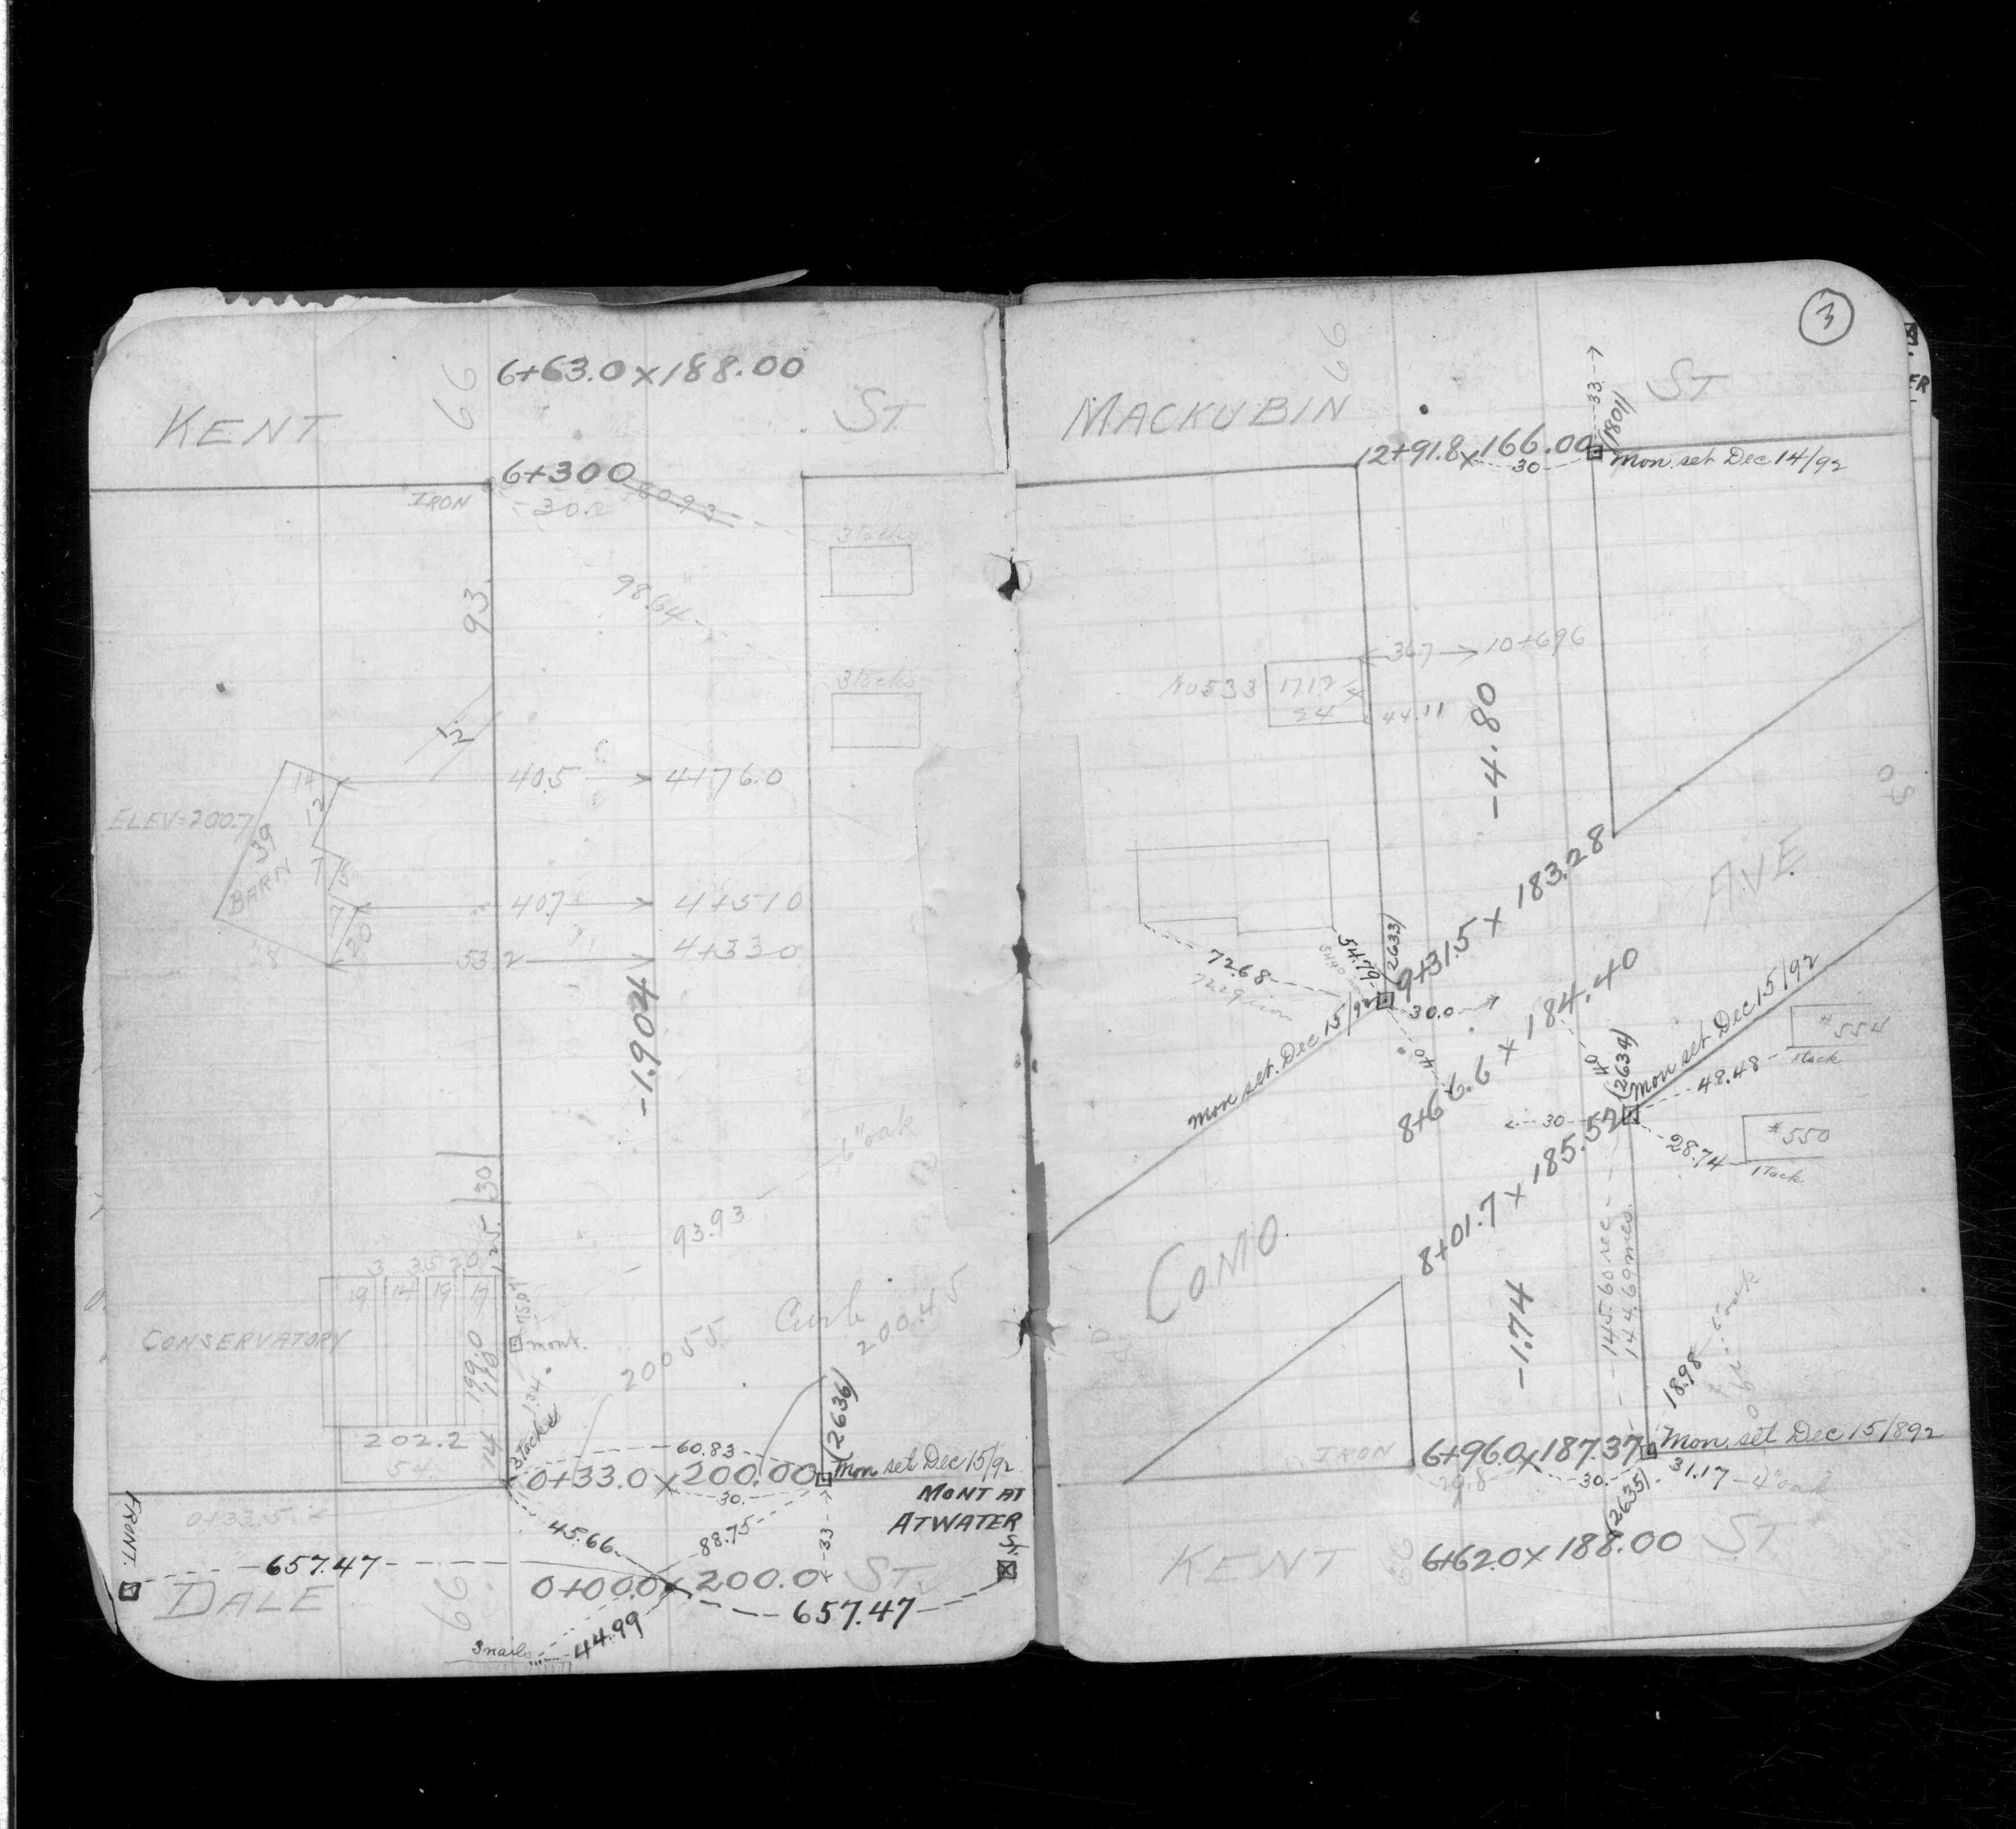 6+63.0 x 188.00
66
KENT
ST
6+300
IRON
30.2
8093
3 tacks
98.64
93.
3 tacks
12
14
40.5
4+76.0
ELEV-200.7
12
39
BARN
7
5
40.7
4+510
7
20
8
53.2
4+330
-1.904
6" oak
30
125.
93.93
3. 3.5 2.0
19 14 19 17
Curb
CONSERVATORY
mont.
199.0
200.55
200.45
1.34
3 tacks
(2636)
202.2
54.
14
60.83
0+33.0 x 200.00
Mon set Dec 15/92
30.
MONT AT
ATWATER
St.
FRONT.
0+33.5
45.66
88.75
33
657.47
DALE
66
0+00.0 x 200.0
ST.
657.47
3 nails
44.99
3
66
MACKUBIN
ST
33.
(1801)
12+91.8 x 166.00
30
Mon. set Dec 14/92
36.7
10+696
No 533
1712
24
44.11
-4.80
9+31.5 x 183.28
AVE.
(2633)
54.79
72.68
30.0
40
Mon set. Dec 15/92
8+66.6 x 184.40
40
(2634)
Mon set Dec 15/92
#554
1 tack
48.48
30
#550
28.74
1 Tack
8+01.7 x 185.52
COMO.
145.60 rec
144.69 mea.
-1.74
18.98
IRON
6+960 x 187.37
Mon. set Dec 15/892
29.8
30.
31.17 - 4" oak
(2635)
KENT
66
6+62.0 x 188.00
ST